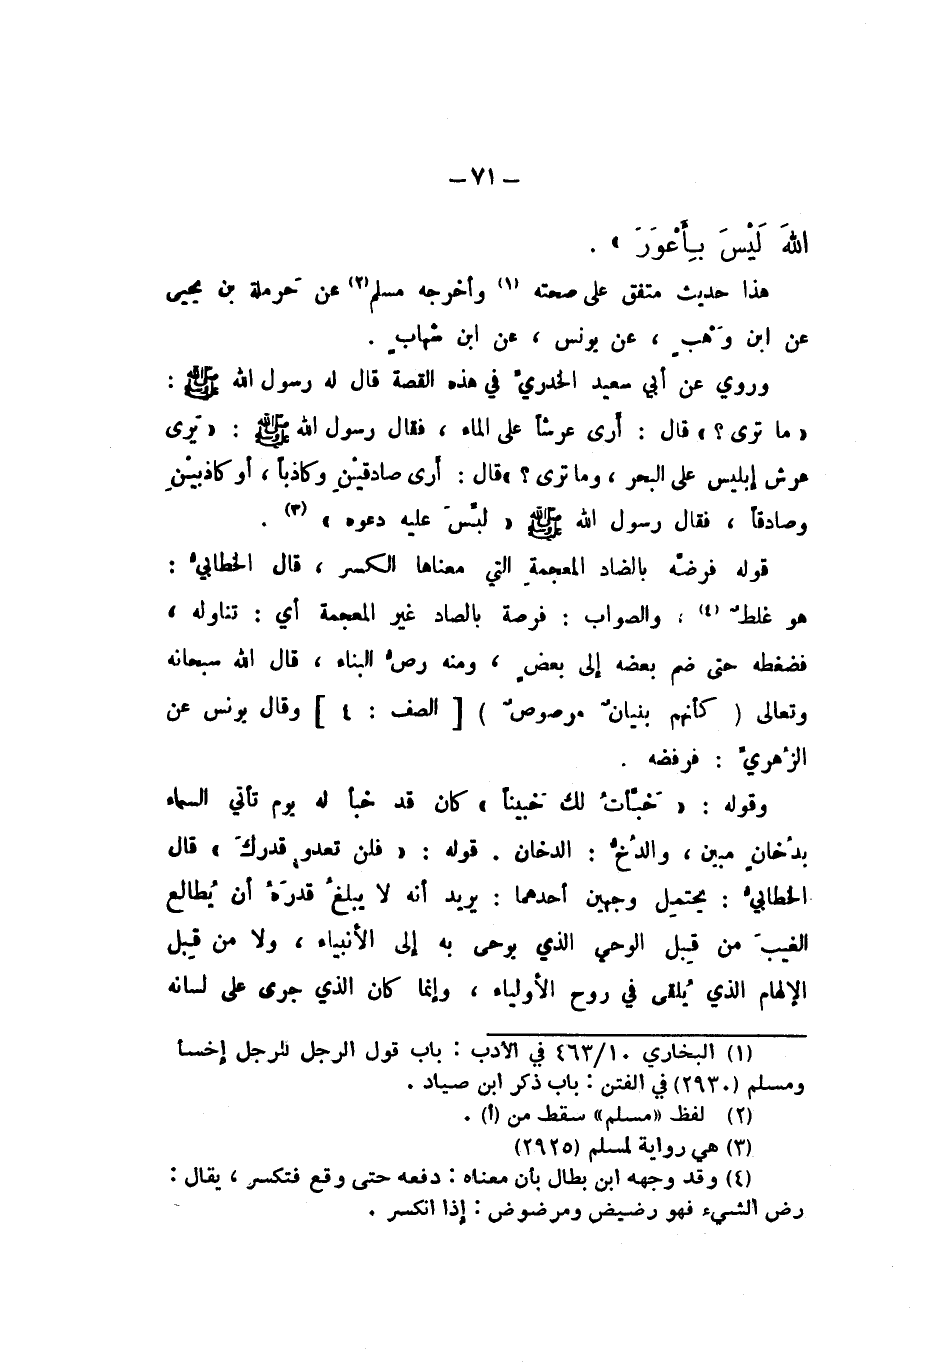 – ٧١ –
اللهَ لَيْسَ بِأَعْوَرَ » .
هذا حديث متفق على صحته (١) وأخرجه مسلم(٢) عن حَرملة بن يحيى
عن ابن وَهبٍ ، عن يونس ، عن ابن شهابٍ .
وروي عن أبي سعيد الخدريِّ في هذه القصة قال له رسول الله ﷺ :
« ما ترى ؟ » قال : أَرى عرشاً على الماء ، فقال رسول الله ﷺ : « تَرى
عرش إبليس على البحر ، وما ترى ؟ » قال : أَرى صادقَيْنِ وكاذباً ، أو كاذبيْنِ
وصادقاً ، فقال رسول الله ﷺ « لبِّسَ عليه دعوه » (٣) .
قوله فرضَّه بالضاد المعجمةِ التي معناها الكسر ، قال الخطابيُّ :
هو غلطٌ (٤) ، والصواب : فرصة بالصاد غير المعجمة أي : تناوله ،
فضغطه حتى ضم بعضه إلى بعضٍ ، ومنه رصُّ البناء ، قال الله سبحانه
وتعالى ( كأنهم بنيانٌ مرصوصٌ ) [ الصف : ٤ ] وقال يونس عن
الزُهريِّ : فرفضه .
وقوله : « خَبَّأتُ لك خَبيئاً » كان قد خبأ له يوم تأتي السماء
بدُخانٍ مبين ، والدُخُّ : الدخان . قوله : « فلن تعدوِ قدركَ » قال
الخطابيُّ : يحتمل وجهين أحدهما : يريد أنه لا يبلغُ قدرَهُ أن يُطالع
الغيبَ من قِبل الوحي الذي يوحى به إلى الأنبياء ، ولا من قِبل
الإلهام الذي يُلقى في روح الأولياء ، وإنما كان الذي جرى على لسانه
(١) البخاري ٤٦٣/١٠ في الأدب : باب قول الرجل للرجل إخسأ
ومسلم (٢٩٣٠) في الفتن : باب ذكر ابن صياد .
(٢) لفظ «مسلم» سقط من (أ) .
(٣) هي رواية لمسلم (٢٩٢٥)
(٤) وقد وجهه ابن بطال بأن معناه : دفعه حتى وقع فتكسر ، يقال :
رض الشيء فهو رضيض ومرضوض : إذا انكسر .